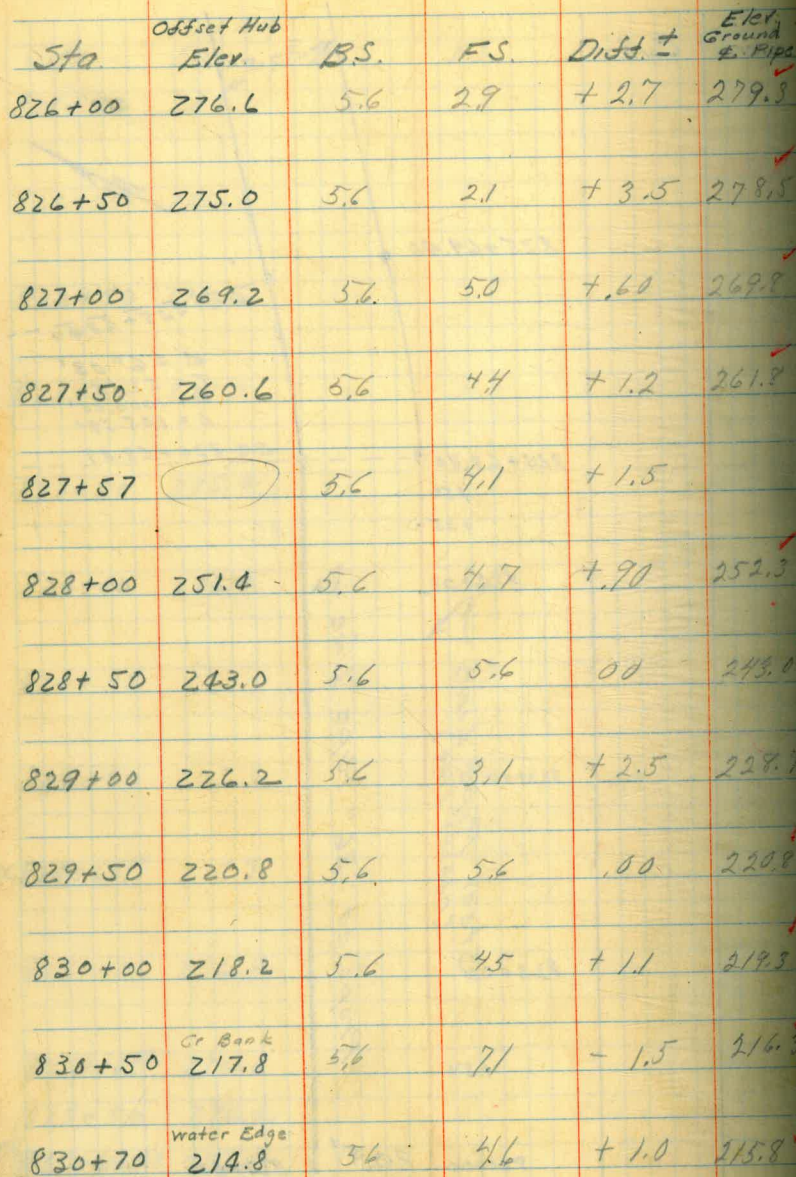 Sta. Offset Hub Elev. B.S. F.S. Diff. ± Elev. Ground ℄ Pipe
826+00 276.6 5.6 2.9 + 2.7 279.3
826+50 275.0 5.6 2.1 + 3.5 278.5
827+00 269.2 5.6. 5.0 +.60 269.8
827+50 260.6 5.6 4.4 + 1.2 261.8
827+57 5.6 4.1 + 1.5
828+00 251.4 - 5.6 4.7 +.90 252.3
828+50 243.0 5.6 5.6 00 243.0
829+00 226.2 5.6 3.1 + 2.5 228.
829+50 220.8 5.6. 5.6 .00 220.8
830+00 218.2 5.6 4.5 + 1.1 219.3
830+50 Cr Bank 217.8 5.6 7.1 - 1.5 216.
830+70 Water Edge 214.8 5.6 4.6 + 1.0 215.8